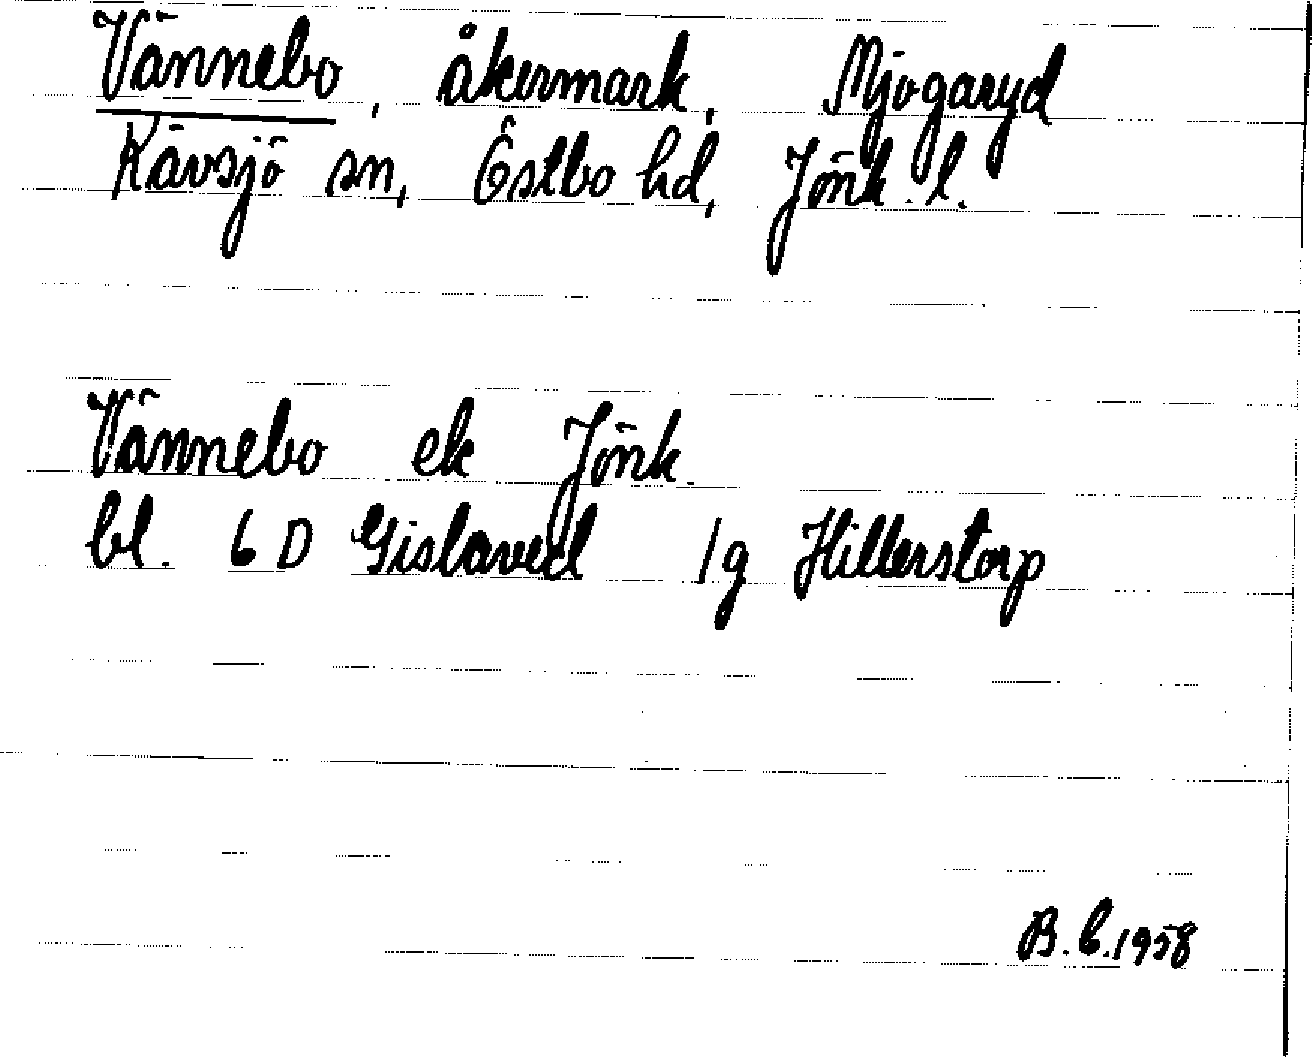 Vännebo, åkermark, Mjogaryd
Kävsjö sn, Östbo hd, Jönk. l.
Vännebo ek Jönk.
bl. 6 D Gislaved 1g Hillerstorp
B. b. 1958